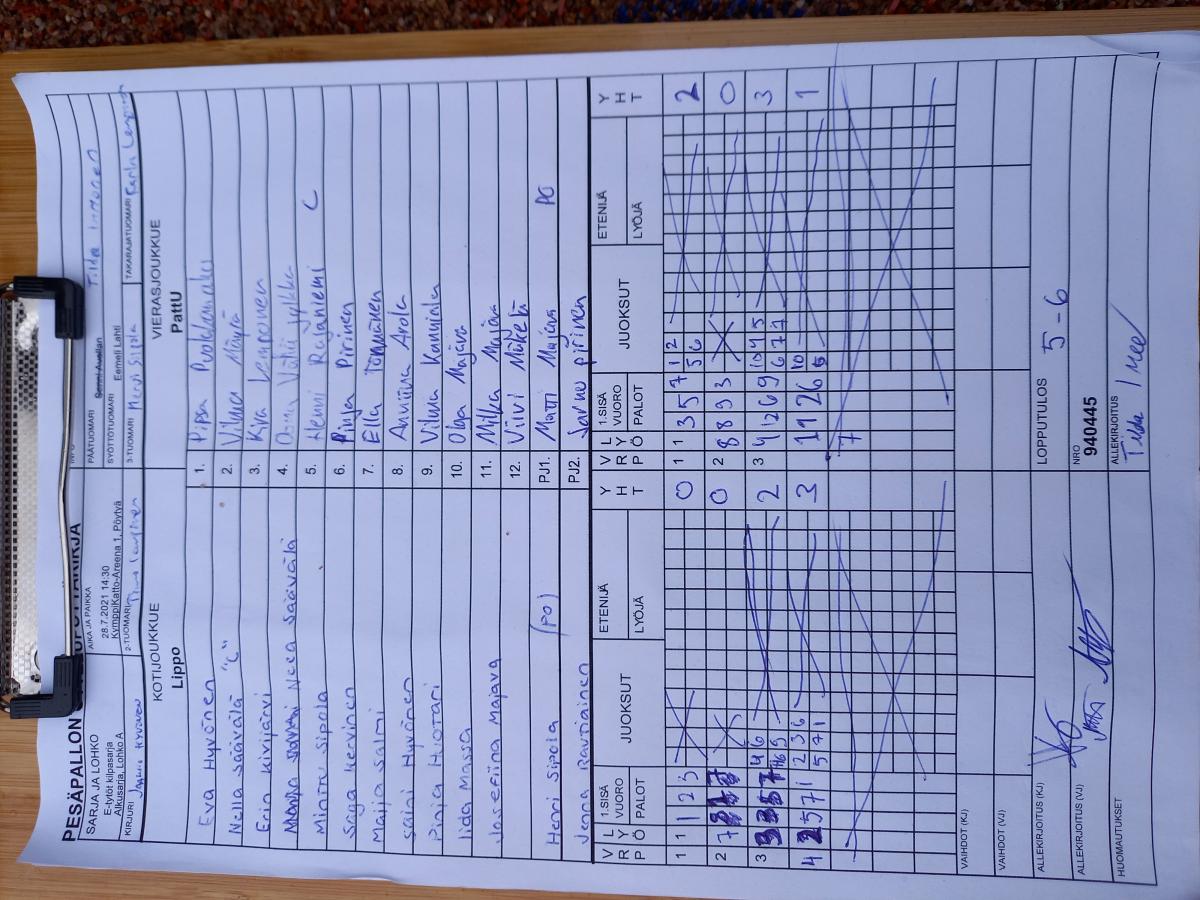 PESÄPALLON
SARJA JA LOHKO
E-tytöt kilpasarja
Alkusarja, Lohko A
AIKA JA PAIKKA
28.7.2021 14:30
KymppiKatto-Areena 1, Pöytyä
PÄÄTUOMARI Tilda Immonen
SYÖTTÖTUOMARI Eemeli Lahti
KIRJURI
2-TUOMARI
3-TUOMARI
TAKARAJATUOMARI
KOTIJOUKKUE
Lippo
VIERASJOUKKUE
PattU
Eva Hyvönen 1. Pipsa
Nella Säävälä "C" 2. Vilma Mäyrä
Enin Kivijärvi 3. Kira Lemponen
Neea Säävälä 4.
Minttu Sipola 5. Henni Rajaniemi C
Saga Kervinen 6. Pinja Pirinen
Maija Salmi 7. Ella
Saini Hyvönen 8. Anniina Arola
Pinja Huotari 9. Vilma Kannisla
Iida Massa 10. Olga Majava
Josefiina Majava 11. Milka Majava
12. Viivi Mäkelä
Henri Sipola (PO) PJ1. Matti Majava PO
Jenna Rautiainen PJ2. Jarno Pirinen
V R P L Y Ö 1.SISÄ VUORO PALOT JUOKSUT ETENIJÄ LYÖJÄ Y H T
V R P L Y Ö 1.SISÄ VUORO PALOT JUOKSUT ETENIJÄ LYÖJÄ Y H T
1 1 1 2 3 0
1 1 3 5 7 1 2 5 6 2
2 7 0
2 8 8 9 3 0
3 4 6 2
3 4 12 6 9 10 4 5 6 7 7 3
4 5 7 1 2 3 6 5 7 1 3
11 2 6 10 5 1
7
VAIHDOT (KJ)
VAIHDOT (VJ)
ALLEKIRJOITUS (KJ)
LOPPUTULOS 5-6
ALLEKIRJOITUS (VJ)
NRO
940445
HUOMAUTUKSET
ALLEKIRJOITUS